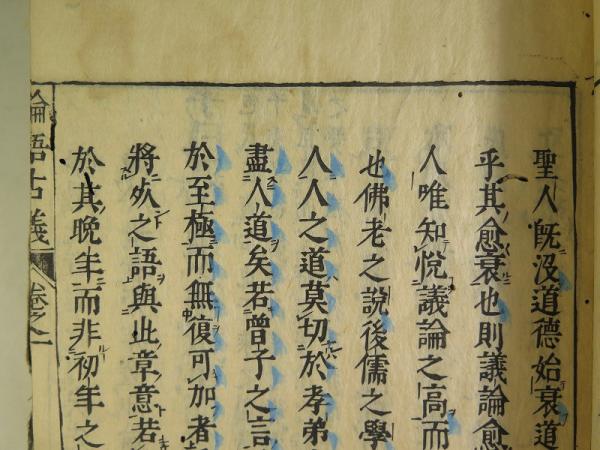 聖人既沒道德始衰道
乎其愈衰也則議論愈
人唯知悅議論之高而
也佛老之說後儒之學
人人之道莫切於孝弟
盡人道矣若曾子之言
於至極而無復可加者
將㱙之語與此章意若
於其晚年而非初年之
論語古義 卷之一